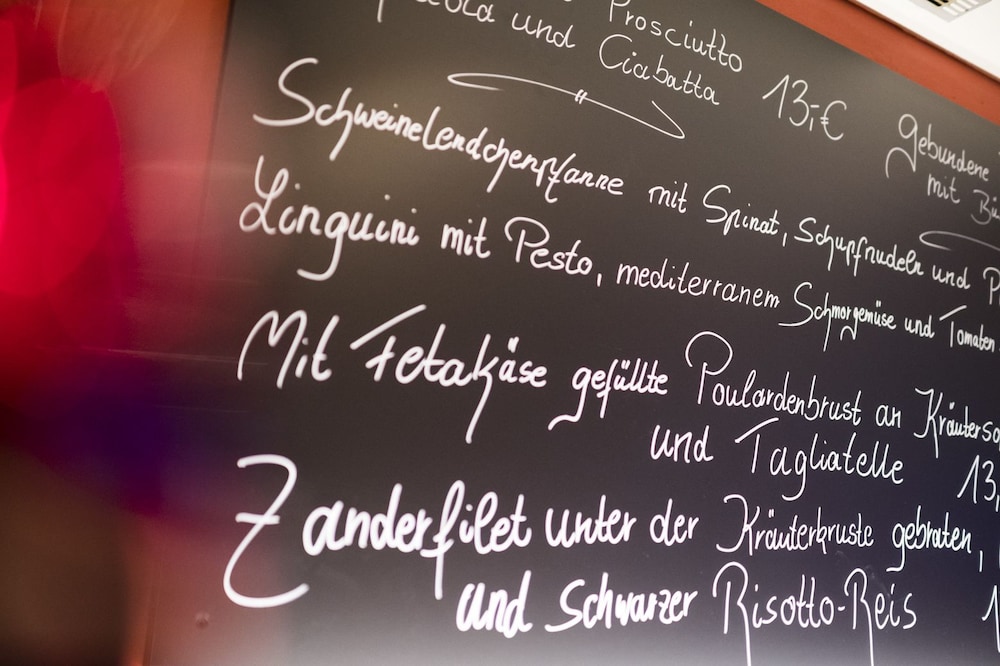 Prosciutto
und Ciabatta 13,-€
Schweinelendchenpfanne mit Spinat, Schupfnudeln und P
Linguini mit Pesto, mediterranem Schmorgemüse und Tomaten
Mit Fetakäse gefüllte Poulardenbrust an Kräuterso
und Tagliatelle 13,
Zanderfilet unter der Kräuterkruste gebraten,
und Schwarzer Risotto-Reis 1
gebundene
mit Bü